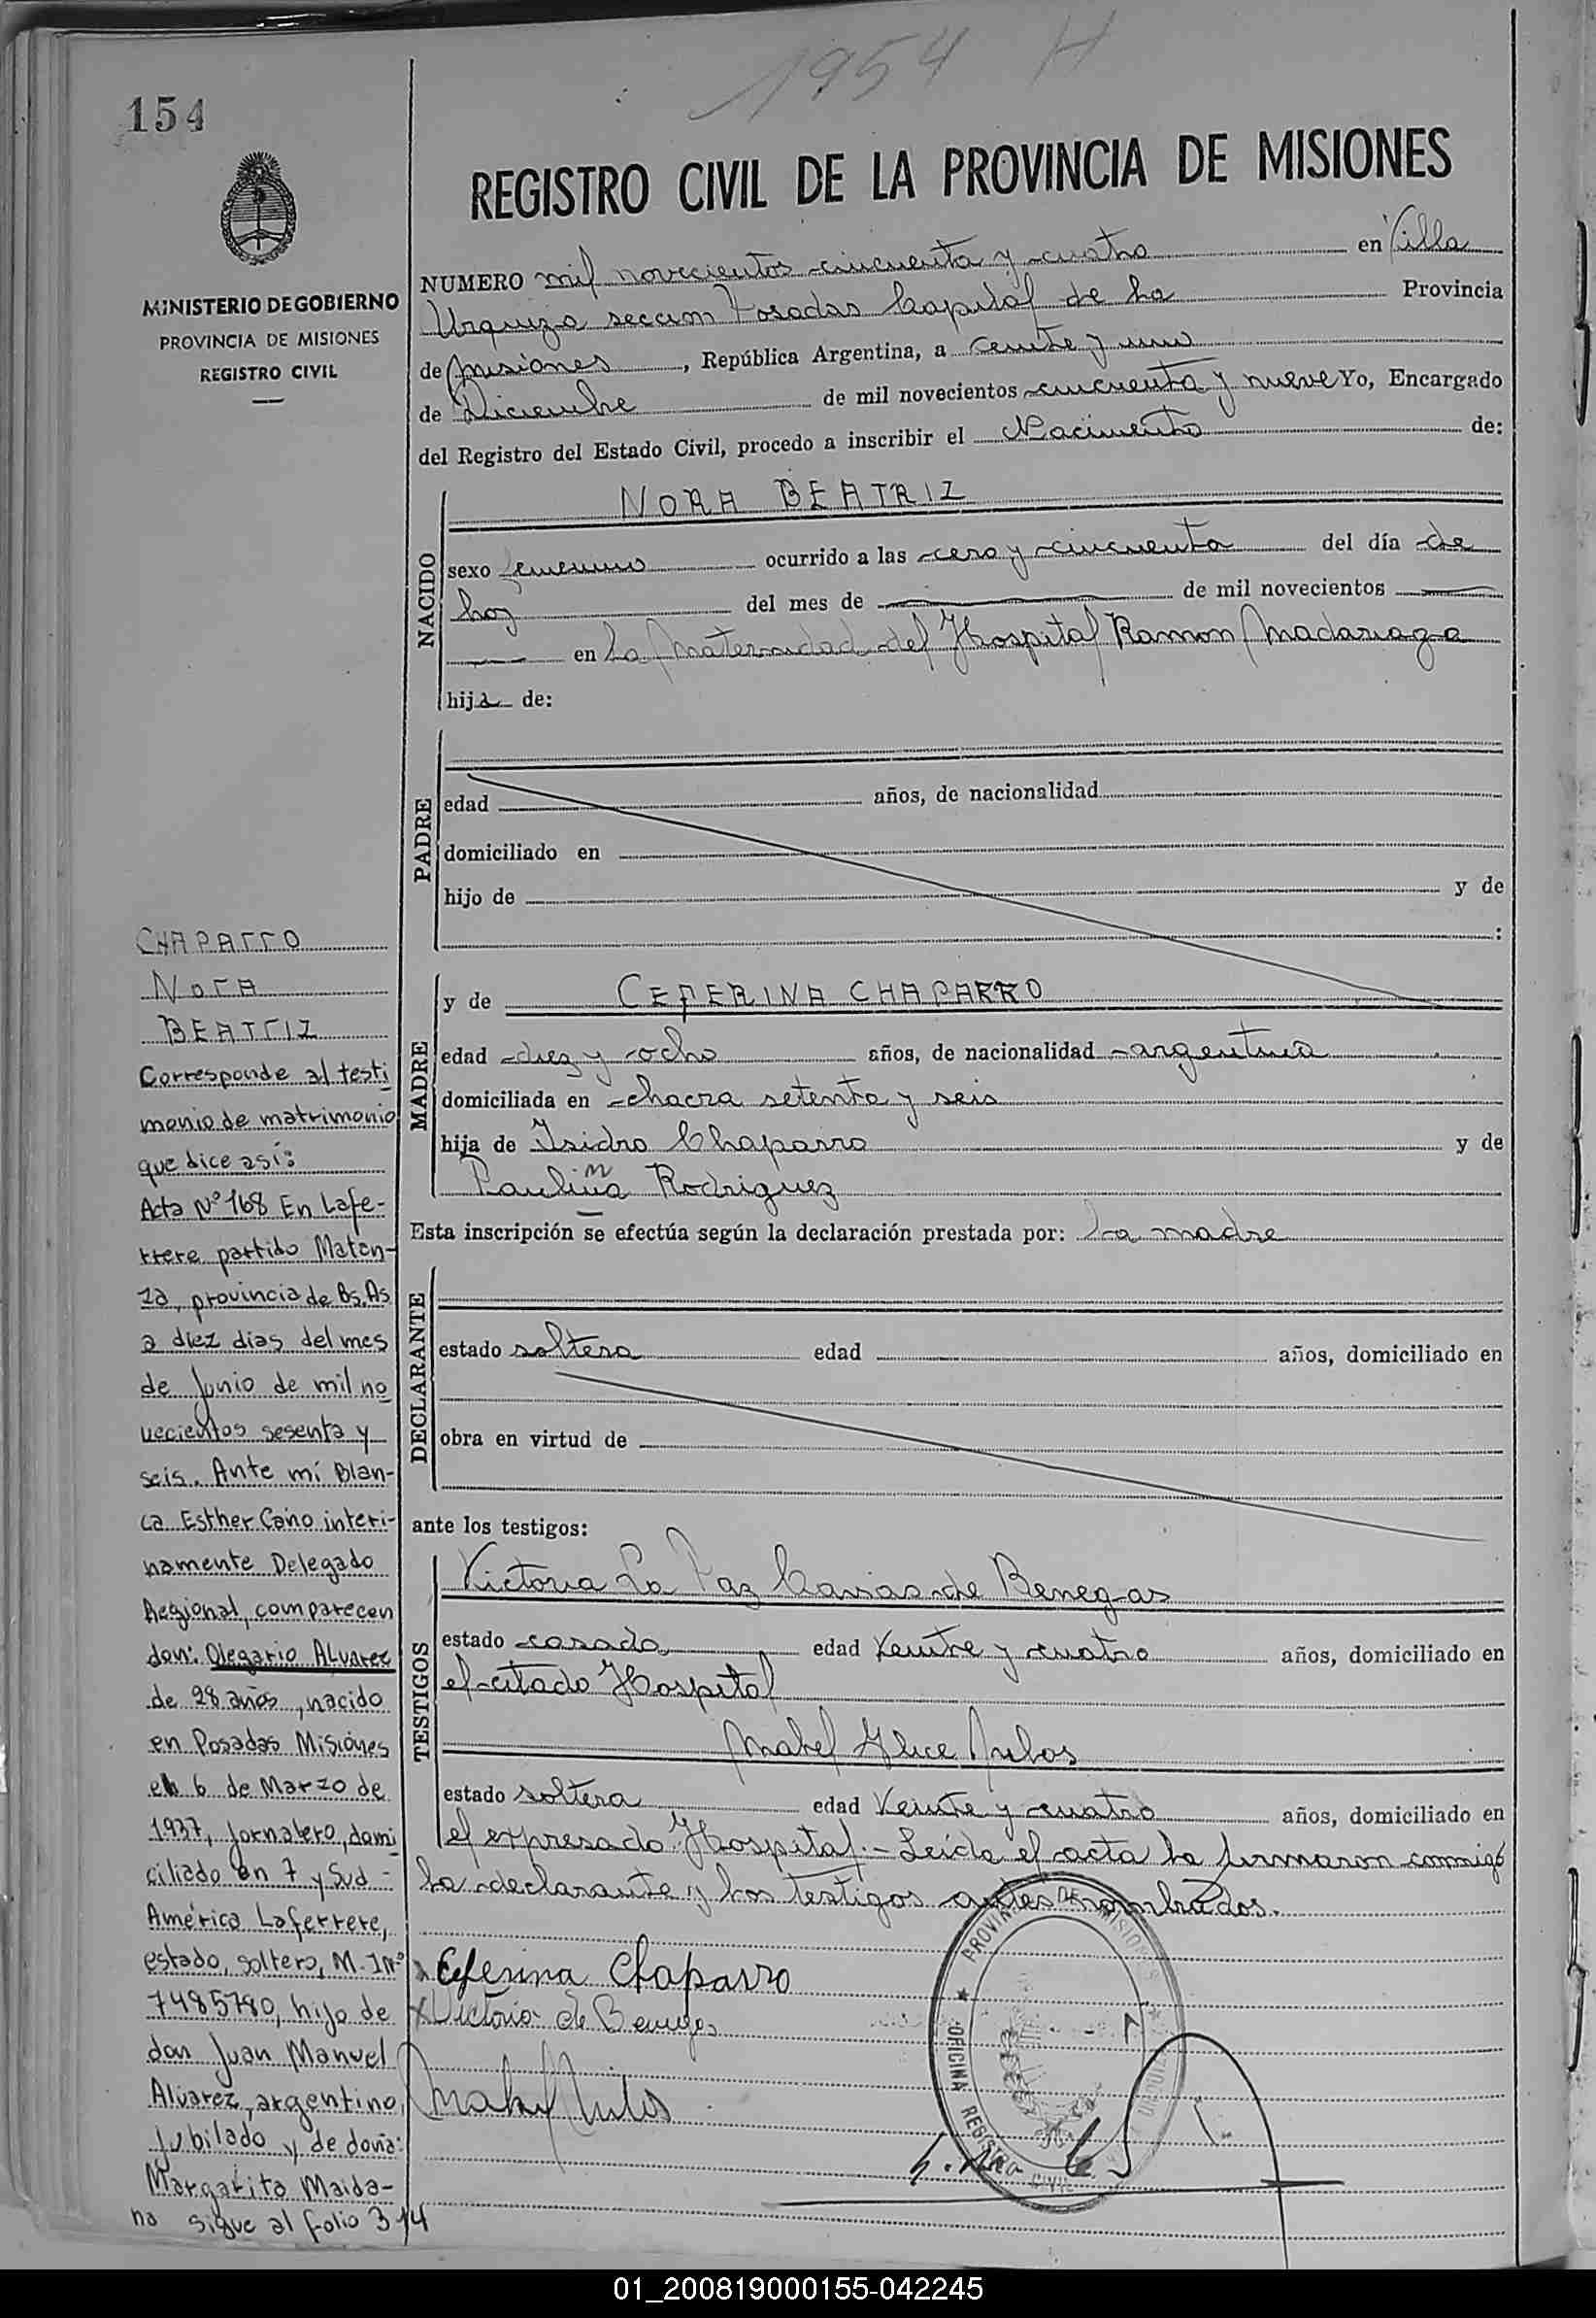 1954 H
154
REGISTRO CIVIL DE LA PROVINCIA DE MISIONES
MINISTERIO DE GOBIERNO
PROVINCIA DE MISIONES
REGISTRO CIVIL
NUMERO mil novecientos cincuenta y cuatro en Villa
Urquiza seccion Posadas Capital de la Provincia
de Misiones, República Argentina, a veinte y uno
de Diciembre de mil novecientos cincuenta y nueve Yo, Encargado
del Registro del Estado Civil, procedo a inscribir el Nacimiento de:
NACIDO
NORA BEATRIZ
sexo femenino ocurrido a las cero y cincuenta del día de
hoy del mes de de mil novecientos
en La Maternidad del Hospital Ramon Madariaga
hija de:
PADRE
edad años, de nacionalidad
domiciliado en
hijo de y de
:
MADRE
y de CEFERINA CHAPARRO
edad diez y ocho años, de nacionalidad argentina
domiciliada en chacra setenta y seis
hija de Isidro Chaparro y de
Paulina Rodriguez
Esta inscripción se efectúa según la declaración prestada por: La madre
DECLARANTE
estado soltera edad años, domiciliado en
obra en virtud de
ante los testigos:
TESTIGOS
Victoria La Paz de Benegas
estado casada edad Veinte y cuatro años, domiciliado en
el citado Hospital
Mabel
estado soltera edad Veinte y cuatro años, domiciliado en
el expresado Hospital.- Leída el acta la firmaron conmigo
la declarante y los testigos antes nombrados.
Ceferina Chaparro
Victoria de Benegas
Mabel
PROVINCIA DE MISIONES
OFICINA REGISTRO CIVIL
CHAPARRO
NORA
BEATRIZ
Corresponde al testi
monio de matrimonio
que dice así:
Acta Nº 168 En Lafe-
rrere partido Matan-
za, provincia de Bs. As
a diez dias del mes
de Junio de mil no
vecientos sesenta y
seis. Ante mí Blan-
ca Esther Cano interi-
namente Delegado
Regional, comparecen
don: Olegario Alvarez
de 28 años, nacido
en Posadas Misiones
el 6 de Marzo de
1937, jornalero, domi
ciliado en 7 y Sud-
América Laferrere,
estado, soltero, M. I Nº
7485780, hijo de
don Juan Manuel
Alvarez, argentino,
jubilado y de doña:
Margarita Maida-
na sigue al folio 314
01_200819000155-042245